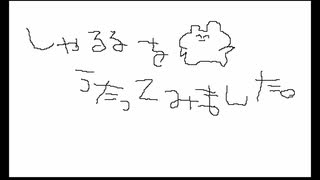 しゃるるを
うたってみました。